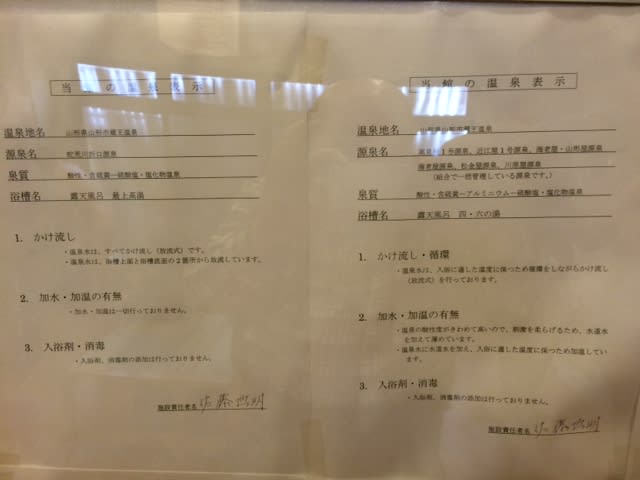 当館の温泉表示
温泉地名 山形県山形市蔵王温泉
源泉名 蛇荒川折口源泉
泉質 酸性・含硫黄－硫酸塩・塩化物温泉
浴槽名 露天風呂 最上高湯
1. かけ流し
・温泉水は、すべてかけ流し（放流式）です。
・温泉水は、浴槽上面と浴槽底面の２箇所から放流しています。
2. 加水・加温の有無
・加水・加温は一切行っておりません。
3. 入浴剤・消毒
・入浴剤、消毒剤の添加は行っておりません。
施設責任者名
当館の温泉表示
温泉地名 山形県山形市蔵王温泉
源泉名 1号源泉、近江屋1号源泉、海老屋・山形屋源泉
海老屋源泉、松金屋源泉、川原屋源泉
（組合で一括管理している源泉です。）
泉質 酸性・含硫黄－アルミニウム－硫酸塩・塩化物温泉
浴槽名 露天風呂 四・六の湯
1. かけ流し・循環
・温泉水は、入浴に適した温度に保つため循環をしながらかけ流し
（放流式）を行っております。
2. 加水・加温の有無
・温泉の酸性度がきわめて高いので、刺激を柔らげるため、水道水
を加えて薄めています。
・温泉水に水道水を加え、入浴に適した温度に保つため加温してい
ます。
3. 入浴剤・消毒
・入浴剤、消毒剤の添加は行っておりません。
施設責任者名